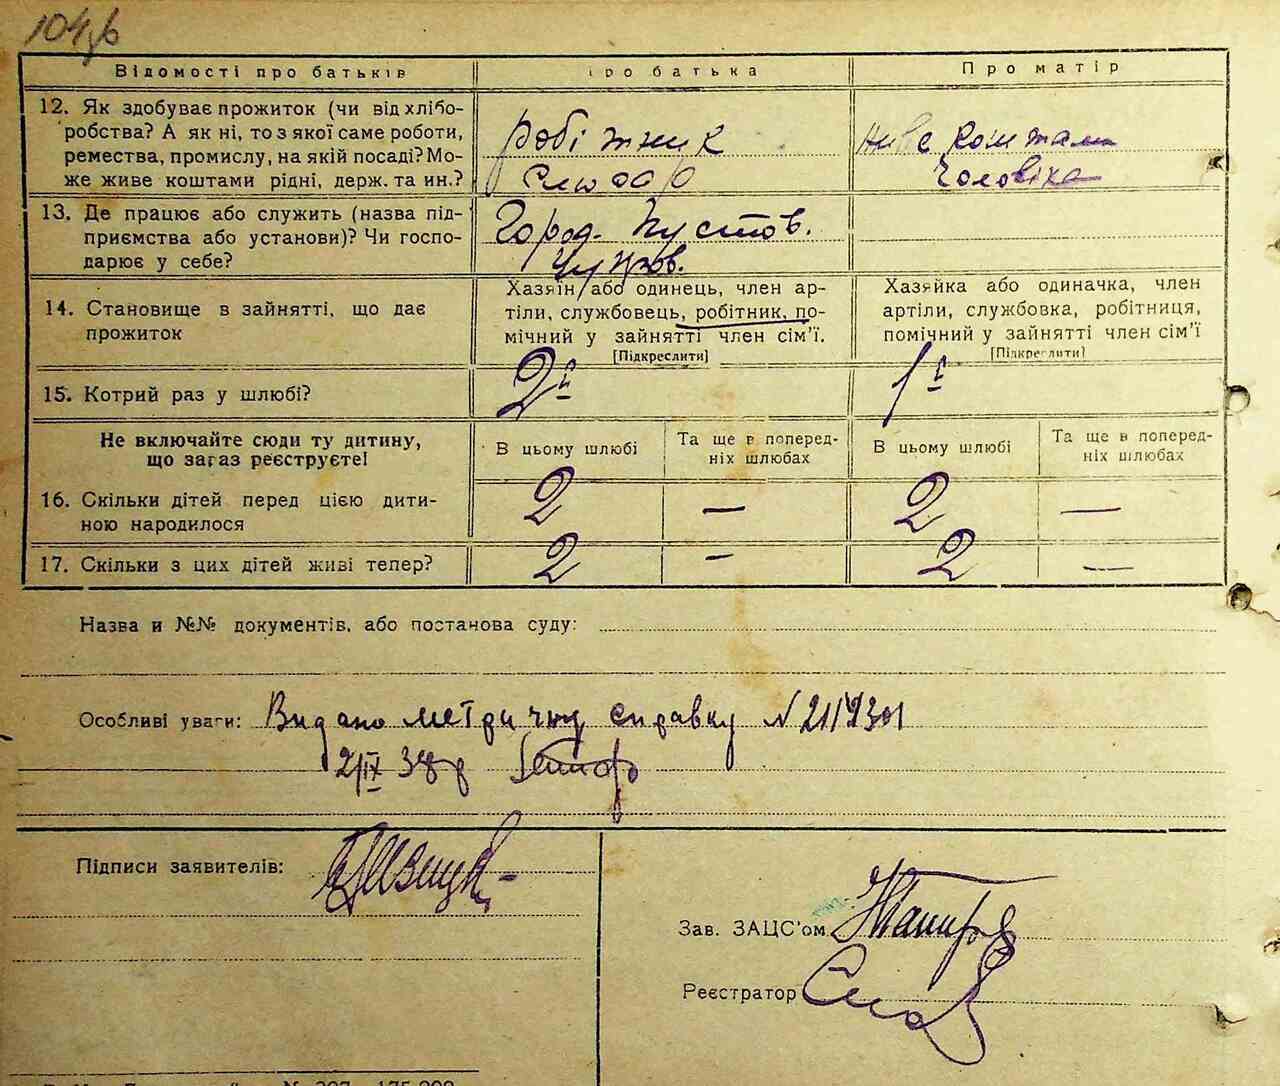 104
Відомості про батьків
Про батька
Про матір
12. Як здобуває прожиток (чи від хлібо-
робства? А як ні, то з якої саме роботи,
ремества, промислу, на якій посаді? Мо-
же живе коштами рідні, держ. та ин.?
робітник
слюсар
живе коштам
чоловіка
13. Де працює або служить (назва під-
приємства або установи)? Чи госпо-
дарює у себе?
Город. Пустов.
цукров.
14. Становище в зайнятті, що дає
прожиток
Хазяїн або одинець, член ар-
тіли, службовець, робітник, по-
мічний у зайнятті член сім'ї.
[Підкреслити]
Хазяйка або одиначка, член
артіли, службовка, робітниця,
помічний у зайнятті член сім'ї
[Підкреслити]
15. Котрий раз у шлюбі?
2й
1й
Не включайте сюди ту дитину,
що зараз реєструєте!
В цьому шлюбі
Та ще в поперед-
ніх шлюбах
В цьому шлюбі
Та ще в поперед-
ніх шлюбах
16. Скільки дітей перед цією дити-
ною народилося
2
—
2
—
17. Скільки з цих дітей живі тепер?
2
—
2
—
Назва и №№ документів, або постанова суду:
Особливі уваги: Видано метричну справку N
2/IX 38р
Підписи заявителів:
Зав. ЗАЦС'ом
Реєстратор